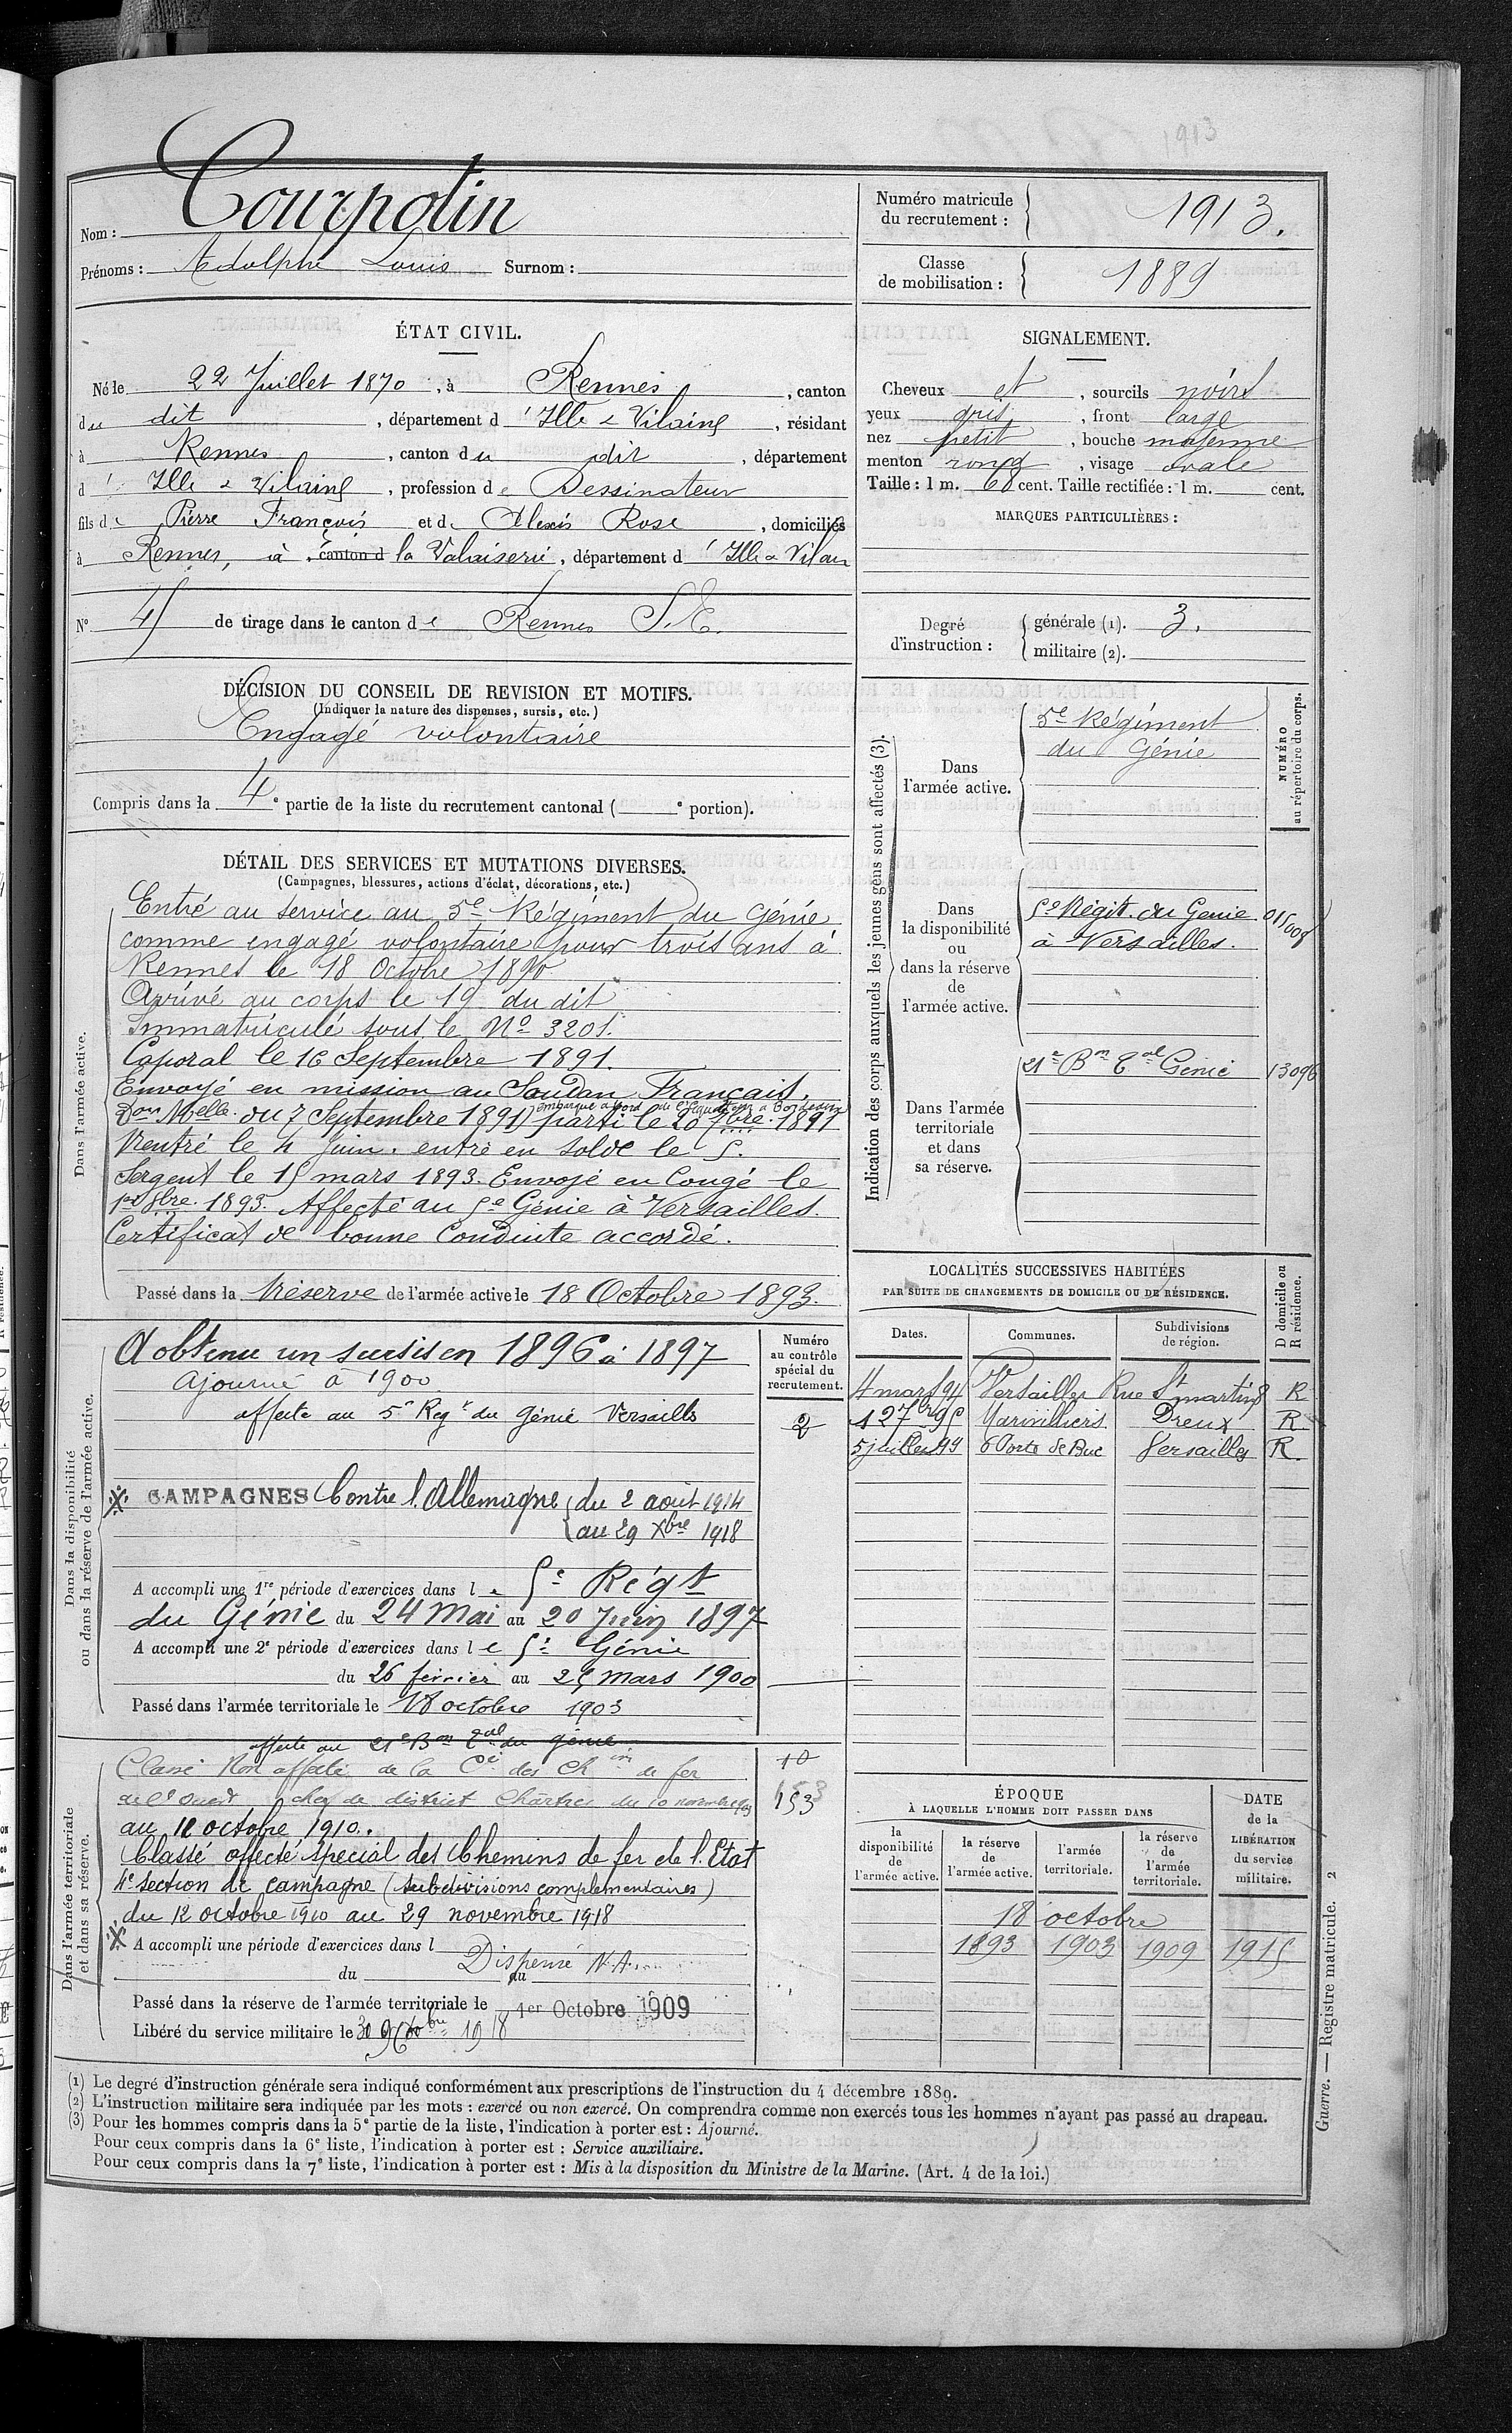 1913
Nom : Courpotin
Prénoms : Adolphe Louis Surnom :
Numéro matricule du recrutement : 1913.
Classe de mobilisation : 1889
ÉTAT CIVIL.
Né le 22 Juillet 1870, à Rennes, canton
du dit, département d'Ille & Vilaine, résidant
à Rennes, canton du dit, département
d'Ille & Vilaine, profession de Dessinateur
fils de Pierre François et d. Alexis Rose, domiciliés
à Rennes, à canton d la, département d'Ille & Vilain
N° 45 de tirage dans le canton de Rennes S.E.
SIGNALEMENT.
Cheveux et, sourcils noirs
yeux gris, front large
nez petit, bouche moyenne
menton rond, visage ovale
Taille : 1 m. 68 cent. Taille rectifiée : 1 m. cent.
MARQUES PARTICULIÈRES :
Degré d'instruction : générale (1). 3.
militaire (2).
DÉCISION DU CONSEIL DE REVISION ET MOTIFS.
(Indiquer la nature des dispenses, sursis, etc.)
Engagé volontaire
Compris dans la 4e partie de la liste du recrutement cantonal ( e portion).
DÉTAIL DES SERVICES ET MUTATIONS DIVERSES.
(Campagnes, blessures, actions d'éclat, décorations, etc.)
Dans l'armée active.
Entré au service au 5e Régiment du Génie
comme engagé volontaire pour trois ans à
Rennes le 18 Octobre 1890
Arrivé au corps le 19 du dit
Immatriculé sous le No 3201.
Caporal le 16 Septembre 1891.
Envoyé en mission au Soudan Français,
Don Mlle. du 7 Septembre 1891) parti le 20 7bre. 1891
embarqué à bord de l'Equateur à Bordeaux
Rentré le 4 Juin. entré en solde le 5.
Sergent le 15 mars 1893. Envoyé en Congé le
1er 8bre. 1893. Affecté au 5e Génie à Versailles.
Certificat de bonne Conduite accordé.
Passé dans la Réserve de l'armée active le 18 Octobre 1893.
Indication des corps auxquels les jeunes gens sont affectés (3).
NUMÉRO au répertoire du corps.
Dans l'armée active.
5e Régiment
du Génie
Dans la disponibilité ou dans la réserve de l'armée active.
5e Régit. du Genie
à Versailles.
Dans l'armée territoriale et dans sa réserve.
21e Bon Tal Génie 13096
LOCALITÉS SUCCESSIVES HABITÉES
PAR SUITE DE CHANGEMENTS DE DOMICILE OU DE RÉSIDENCE.
Dates. Communes. Subdivisions de région. D domicile ou R résidence.
4 mars 94 Versailles Rue St martin 8 R
12 7bre 95 Dreux R
5 juillet 99 6 Porte de Buc Versailles R.
Dans la disponibilité ou dans la réserve de l'armée active.
Numéro au contrôle spécial du recrutement.
A obtenu un sursis en 1896 à 1897
Ajourné à 1900
affecté au 5e Regt du génie Versailles 2
CAMPAGNES Contre l'Allemagne du 2 août 1914
au 29 Xbre 1918
A accompli une 1re période d'exercices dans le 5e Régt
du Génie du 24 Mai au 20 Juin 1897
A accompli une 2e période d'exercices dans le 5e Génie
du 26 février au 25 mars 1900
Passé dans l'armée territoriale le 18 octobre 1903
Dans l'armée territoriale et dans sa réserve.
affecté au 21e Bon Tal du génie 10
Classé Non affecté de la Cie des Chins de fer
de l'Ouest chef de district Chartres du 10 novembre
au 12 octobre 1910.
Classé affecté spécial des Chemins de fer de l'Etat
4e section de campagne (subdivisions complémentaires)
du 12 octobre 1910 au 29 novembre 1918
A accompli une période d'exercices dans l
Dispensé N.A.
du au
Passé dans la réserve de l'armée territoriale le 1er Octobre 1909
Libéré du service militaire le 1918
ÉPOQUE
À LAQUELLE L'HOMME DOIT PASSER DANS
la disponibilité de l'armée active.
la réserve de l'armée active.
l'armée territoriale.
la réserve de l'armée territoriale.
DATE de la LIBÉRATION du service militaire.
18 octobre
1893 1903 1909 1915
(1) Le degré d'instruction générale sera indiqué conformément aux prescriptions de l'instruction du 4 décembre 1889.
(2) L'instruction militaire sera indiquée par les mots : exercé ou non exercé. On comprendra comme non exercés tous les hommes n'ayant pas passé au drapeau.
(3) Pour les hommes compris dans la 5e partie de la liste, l'indication à porter est : Ajourné.
Pour ceux compris dans la 6e liste, l'indication à porter est : Service auxiliaire.
Pour ceux compris dans la 7e liste, l'indication à porter est : Mis à la disposition du Ministre de la Marine. (Art. 4 de la loi.)
Guerre. — Registre matricule. 2